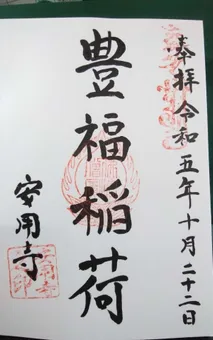 奉拝 令和五年十月二十二日
豊福稲荷
安用寺